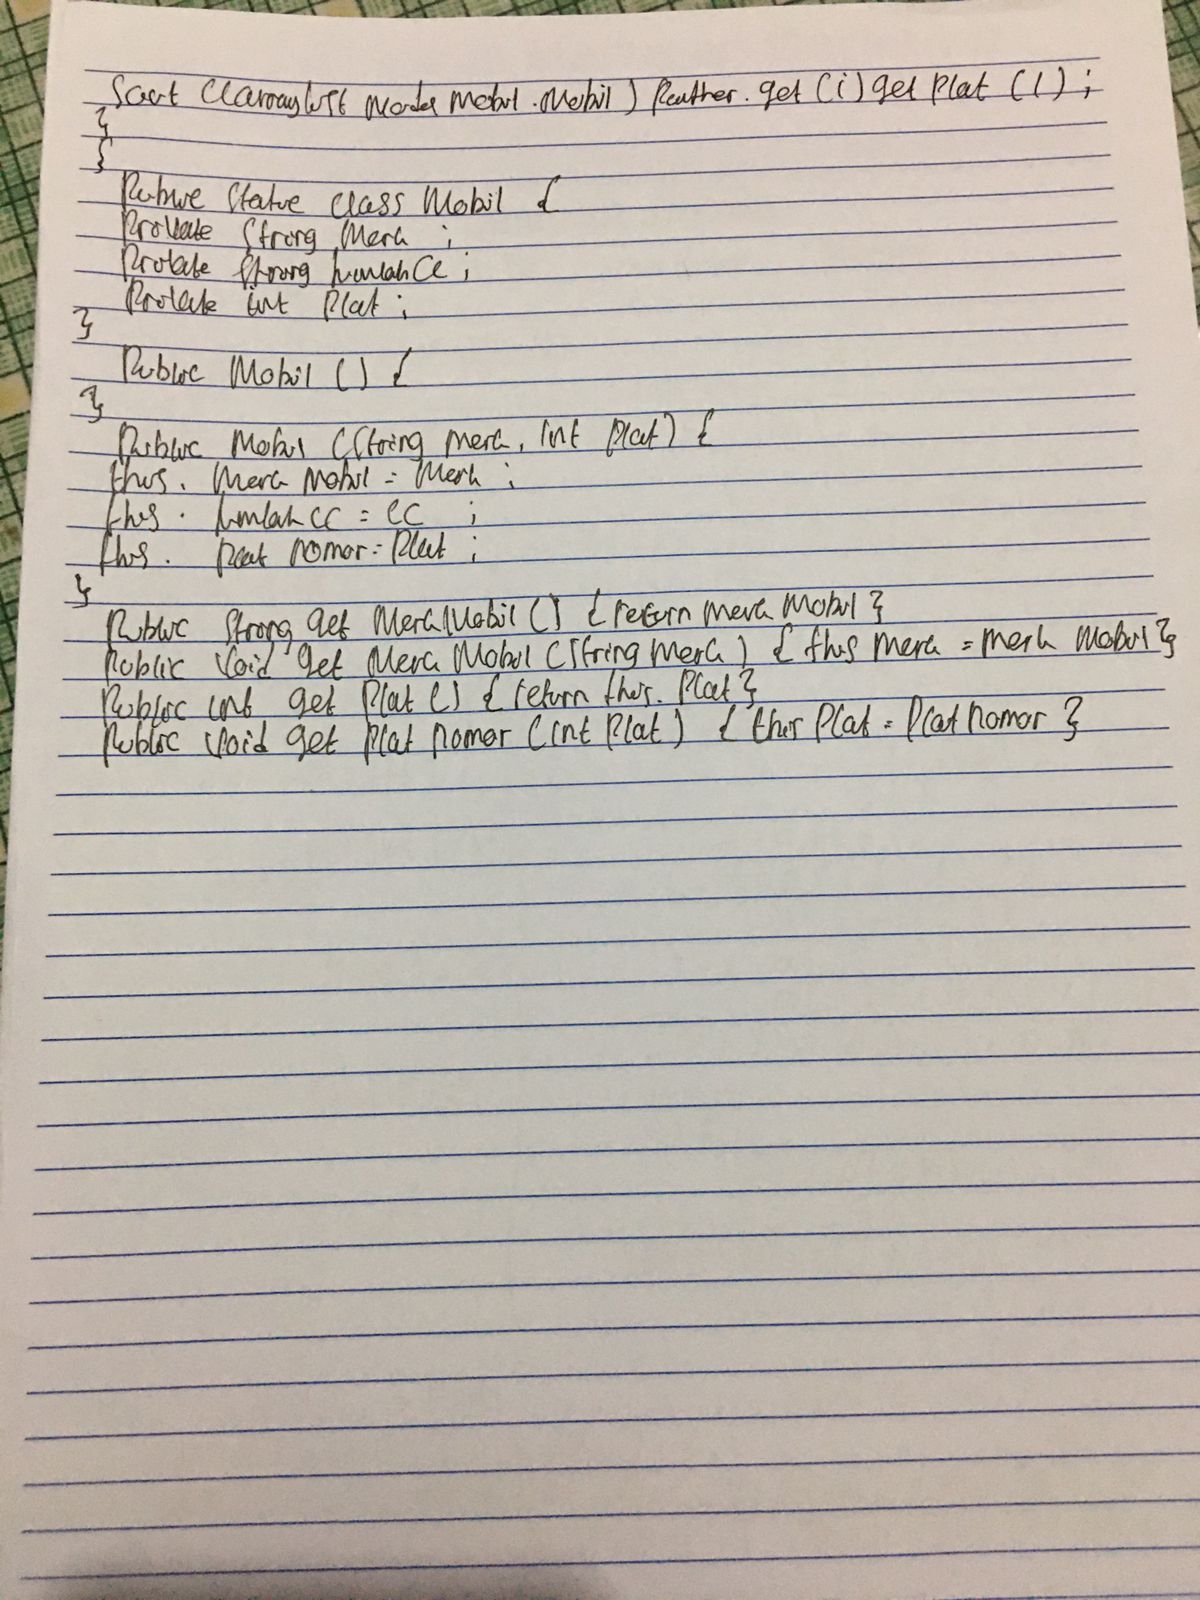 Sout ((arraylist model Mobil . Mobil) Panther . get (i) get Plat ( ) ;
}
}
Public Static class Mobil {
Private String Merk ;
Private String JumlahCC ;
Private int Plat ;
}
Public Mobil () {
}
Public Mobil (String merk, int Plat) {
this . Merk Mobil = Merk ;
this . JumlahCC = CC ;
this . Plat nomor = Plat ;
}
Public String get MerkMobil () { return merk Mobil }
Public Void get Merk Mobil (String Merk) { this merk = merk Mobil }
Public int get Plat () { return this . Plat }
Public Void get Plat nomor (int Plat) { this Plat = Plat nomor }